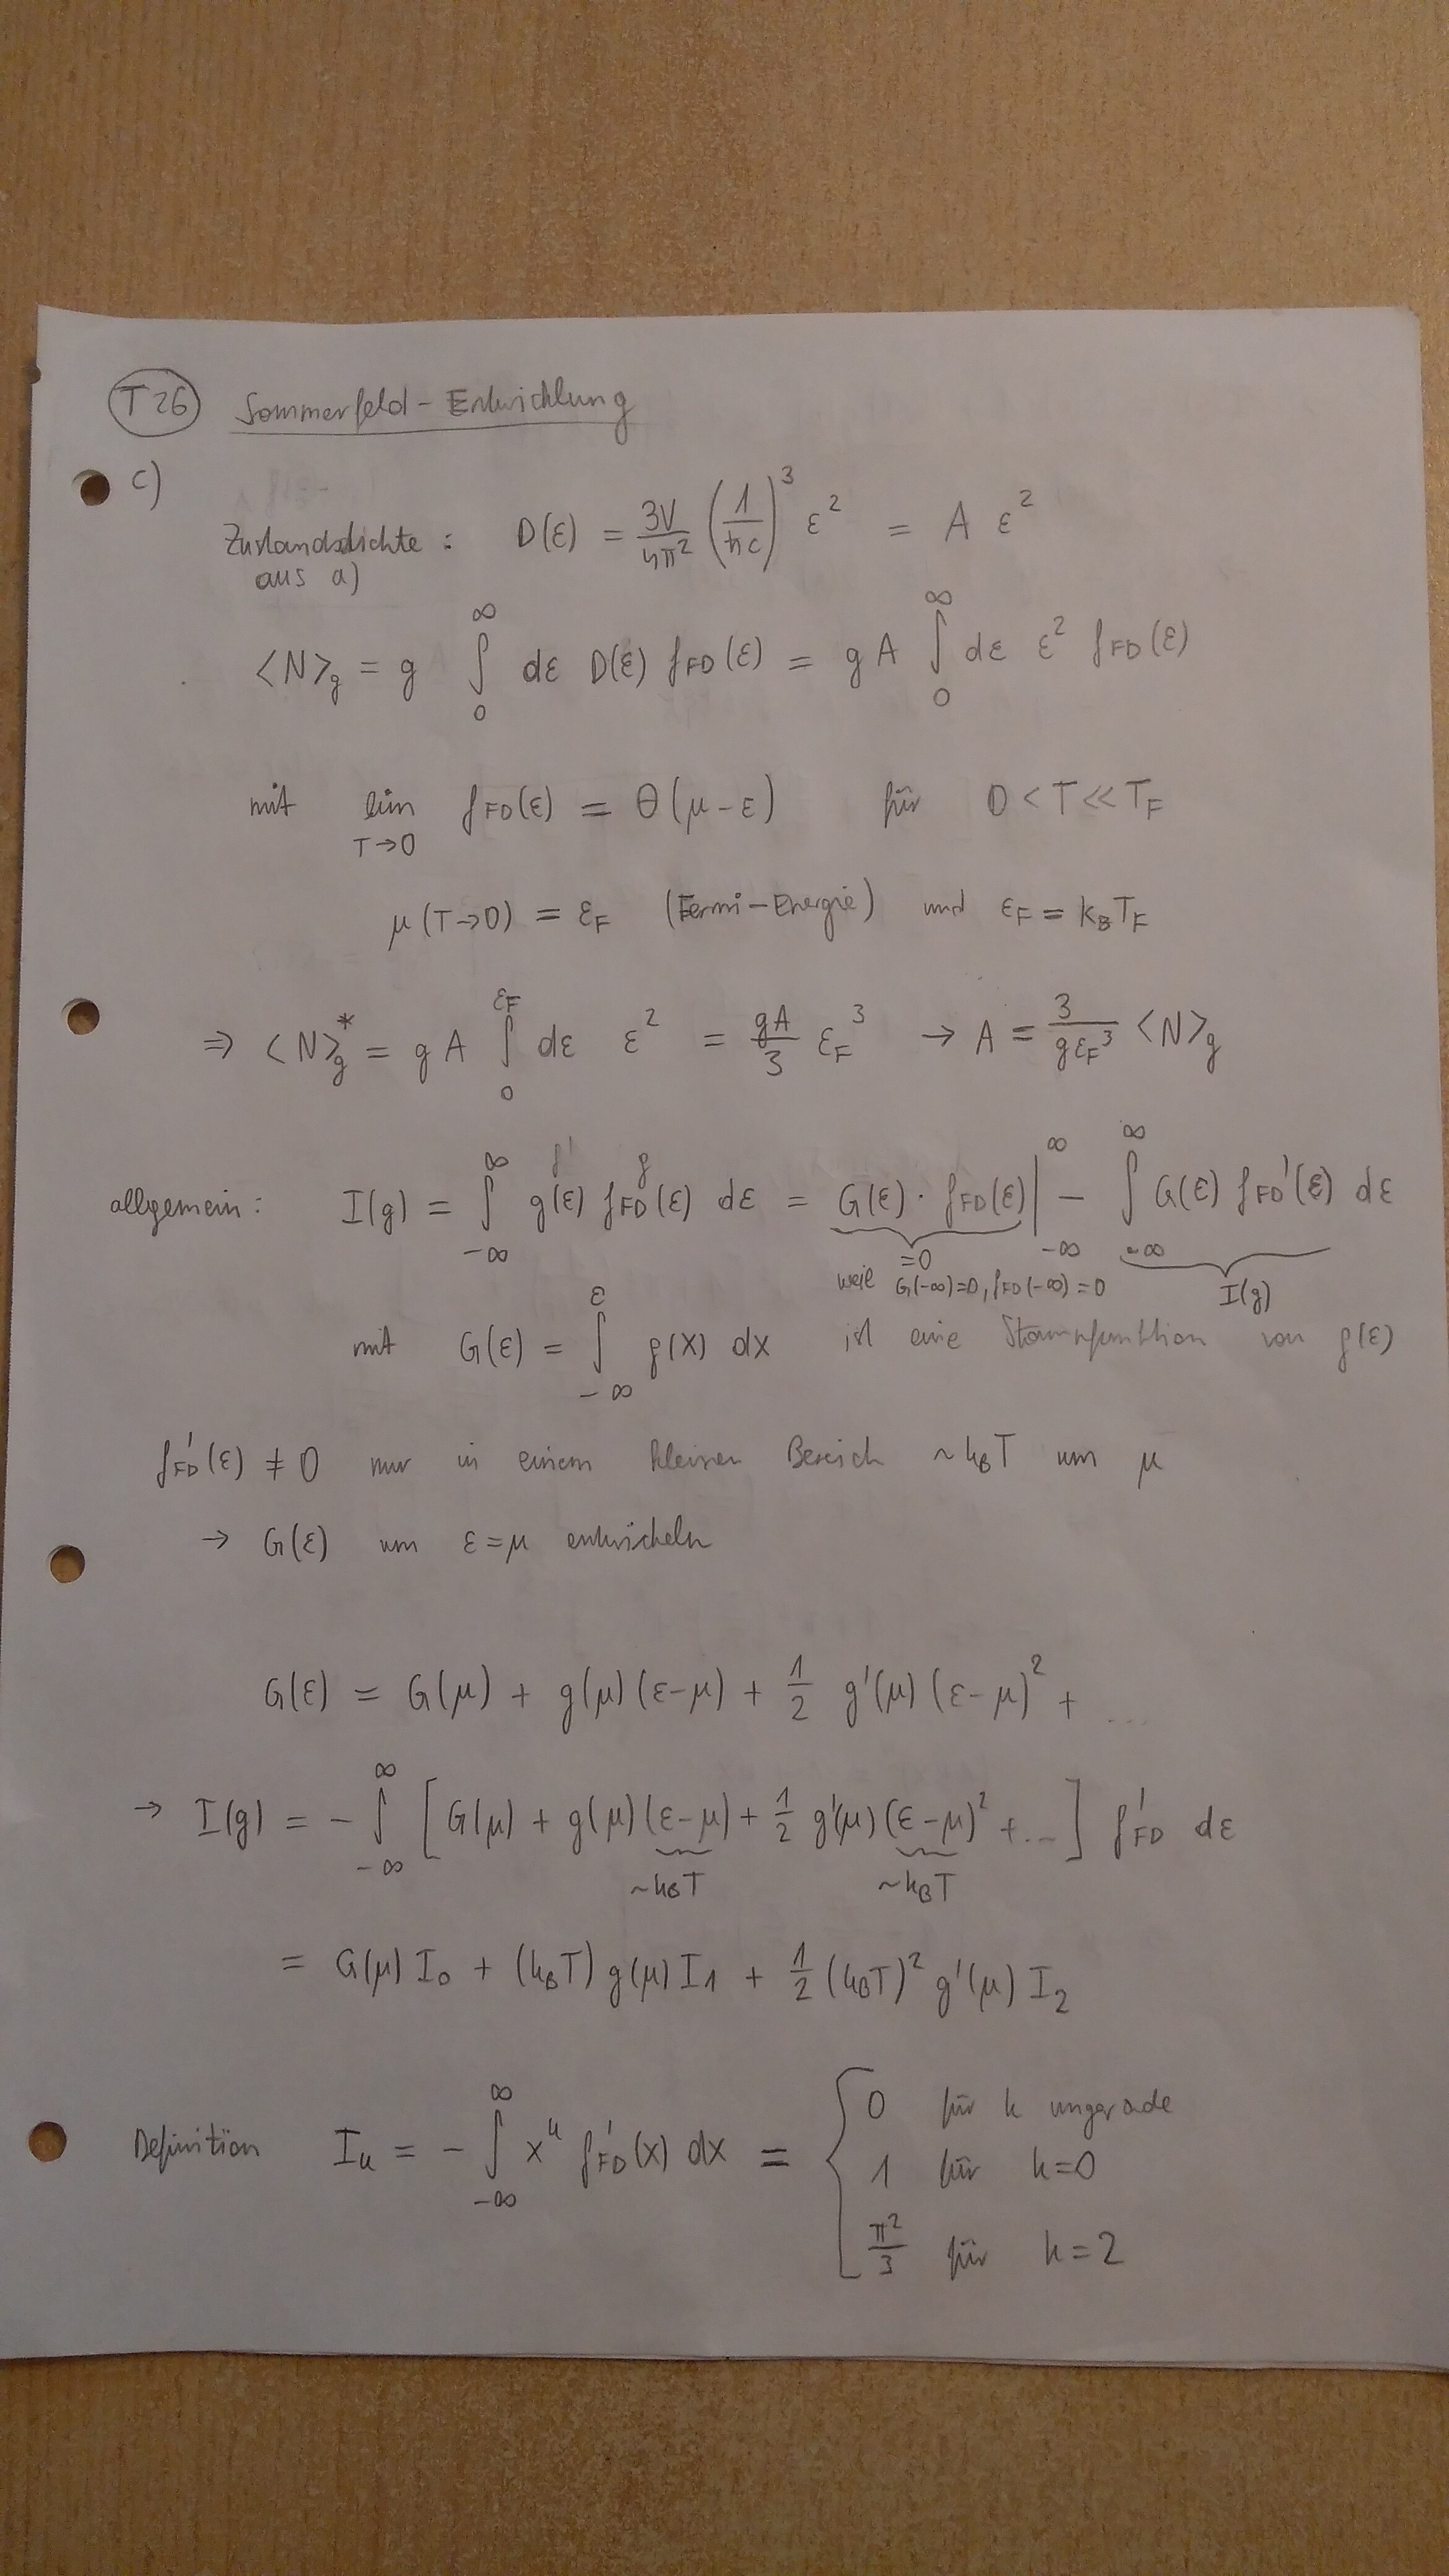 T26 Sommerfeld-Entwicklung
c)
Zustandsdichte: D(ε) = 3V/4π² (1/ħc)³ ε² = A ε²
aus a)
⟨N⟩_g = g ∫_0^∞ dε D(ε) f_FD(ε) = g A ∫_0^∞ dε ε² f_FD(ε)
mit lim_{T→0} f_FD(ε) = Θ(μ-ε) für 0 < T ≪ T_F
μ(T→0) = ε_F (Fermi-Energie) und ε_F = k_B T_F
⇒ ⟨N⟩*_g = g A ∫_0^{ε_F} dε ε² = gA/3 ε_F³ → A = 3/(g ε_F³) ⟨N⟩_g
f' g
allgemein: I(g) = ∫_{-∞}^∞ g(ε) f_FD(ε) dε = G(ε) · f_FD(ε) |_{-∞}^∞ - ∫_{-∞}^∞ G(ε) f_FD'(ε) dε
=0
weil G(-∞)=0, f_FD(-∞)=0 I(g)
mit G(ε) = ∫_{-∞}^ε g(x) dx ist eine Stammfunktion von g(ε)
f'_FD(ε) ≠ 0 nur in einem kleinen Bereich ~k_B T um μ
→ G(ε) um ε=μ entwickeln
G(ε) = G(μ) + g(μ) (ε-μ) + 1/2 g'(μ) (ε-μ)² + ...
→ I(g) = - ∫_{-∞}^∞ [G(μ) + g(μ) (ε-μ) + 1/2 g'(μ) (ε-μ)² + ...] f'_FD dε
~k_B T ~k_B T
= G(μ) I_0 + (k_B T) g(μ) I_1 + 1/2 (k_B T)² g'(μ) I_2
Definition I_k = - ∫_{-∞}^∞ x^k f'_FD(x) dx = { 0 für k ungerade
1 für k=0
π²/3 für k=2